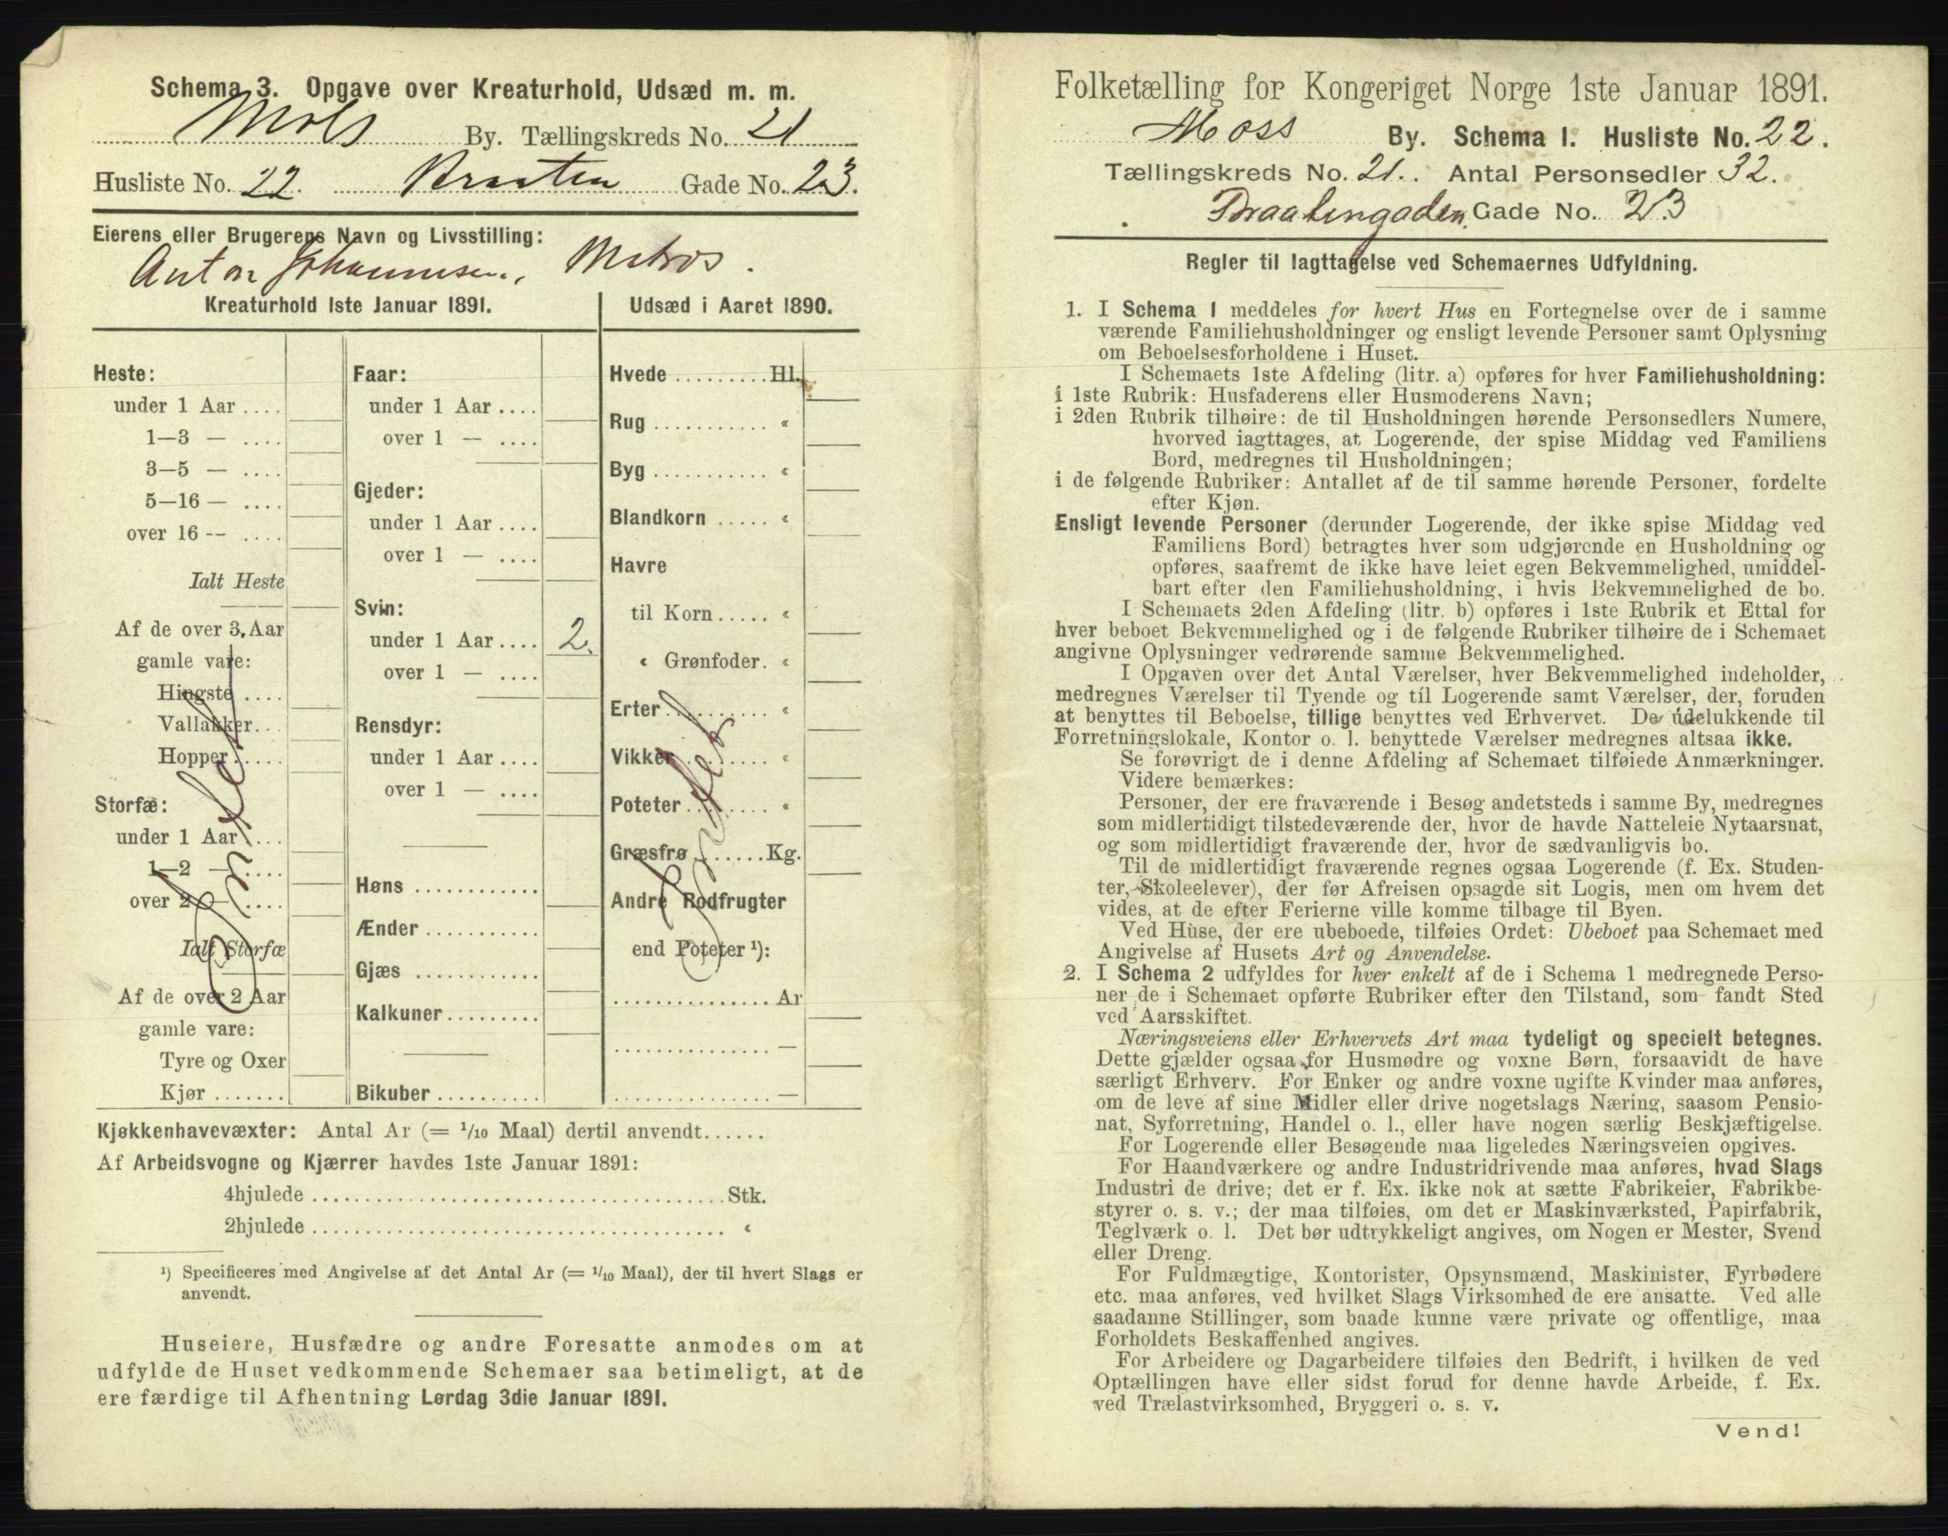 Schema 3. Opgave over Kreaturhold, Udsæd m. m.
Moss By. Tællingskreds No. 21
Husliste No. 22. Braaten Gade No. 23.
Eierens eller Brugerens Navn og Livsstilling:
Anton Johannesen, Matros.
Kreaturhold 1ste Januar 1891.
Heste:
under 1 Aar ....
1—3 — ....
3—5 — ....
5—16 — ....
over 16 -- ....
Ialt Heste
Af de over 3 Aar
gamle vare:
Hingste ....
Vallakker...
Hopper.....
Storfæ:
under 1 Aar ....
1—2 — ....
over 2 — ....
Ialt Storfæ
Af de over 2 Aar
gamle vare:
Tyre og Oxer
Kjør .......
Faar:
under 1 Aar ....
over 1 — ....
Gjeder:
under 1 Aar ....
over 1 — ....
Svin:
under 1 Aar .... 2.
over 1 — ....
Rensdyr:
under 1 Aar ....
over 1 — ....
Høns ............
Ænder ...........
Gjæs ............
Kalkuner.........
Bikuber ..........
Udsæd i Aaret 1890.
Hvede .........Hl.
Rug ........... «
Byg ........... «
Blandkorn ..... «
Havre
til Korn..... «
« Grønfoder. «
Erter.......... «
Vikker ........ «
Poteter ....... «
Græsfrø .......Kg.
Andre Rodfrugter
end Poteter ¹):
...............Ar
............... —
............... —
Intet
Intet
Kjøkkenhavevæxter: Antal Ar (= ¹/₁₀ Maal) dertil anvendt......
Af Arbeidsvogne og Kjærrer havdes 1ste Januar 1891:
4hjulede ......................................Stk.
2hjulede ...................................... «
¹) Specificeres med Angivelse af det Antal Ar (= ¹/₁₀ Maal), der til hvert Slags er
anvendt.
Huseiere, Husfædre og andre Foresatte anmodes om at
udfylde de Huset vedkommende Schemaer saa betimeligt, at de
ere færdige til Afhentning Lørdag 3die Januar 1891.
Folketælling for Kongeriget Norge 1ste Januar 1891.
Moss By. Schema 1. Husliste No. 22.
Tællingskreds No. 21.. Antal Personsedler 32.
Braatengaden. Gade No. 23
Regler til Iagttagelse ved Schemaernes Udfyldning.
1. I Schema 1 meddeles for hvert Hus en Fortegnelse over de i samme
værende Familiehusholdninger og ensligt levende Personer samt Oplysning
om Beboelsesforholdene i Huset.
I Schemaets 1ste Afdeling (litr. a) opføres for hver Familiehusholdning:
i 1ste Rubrik: Husfaderens eller Husmoderens Navn;
i 2den Rubrik tilhøire: de til Husholdningen hørende Personsedlers Numere,
hvorved iagttages, at Logerende, der spise Middag ved Familiens
Bord, medregnes til Husholdningen;
i de følgende Rubriker: Antallet af de til samme hørende Personer, fordelte
efter Kjøn.
Ensligt levende Personer (derunder Logerende, der ikke spise Middag ved
Familiens Bord) betragtes hver som udgjørende en Husholdning og
opføres, saafremt de ikke have leiet egen Bekvemmelighed, umiddel-
bart efter den Familiehusholdning, i hvis Bekvemmelighed de bo.
I Schemaets 2den Afdeling (litr. b) opføres i 1ste Rubrik et Ettal for
hver beboet Bekvemmelighed og i de følgende Rubriker tilhøire de i Schemaet
angivne Oplysninger vedrørende samme Bekvemmelighed.
I Opgaven over det Antal Værelser, hver Bekvemmelighed indeholder,
medregnes Værelser til Tyende og til Logerende samt Værelser, der, foruden
at benyttes til Beboelse, tillige benyttes ved Erhvervet. De udelukkende til
Forretningslokale, Kontor o. l. benyttede Værelser medregnes altsaa ikke.
Se forøvrigt de i denne Afdeling af Schemaet tilføiede Anmærkninger.
Videre bemærkes:
Personer, der ere fraværende i Besøg andetsteds i samme By, medregnes
som midlertidigt tilstedeværende der, hvor de havde Natteleie Nytaarsnat,
og som midlertidigt fraværende der, hvor de sædvanligvis bo.
Til de midlertidigt fraværende regnes ogsaa Logerende (f. Ex. Studen-
ter, Skoleelever), der før Afreisen opsagde sit Logis, men om hvem det
vides, at de efter Ferierne ville komme tilbage til Byen.
Ved Huse, der ere ubeboede, tilføies Ordet: Ubeboet paa Schemaet med
Angivelse af Husets Art og Anvendelse.
2. I Schema 2 udfyldes for hver enkelt af de i Schema 1 medregnede Perso-
ner de i Schemaet opførte Rubriker efter den Tilstand, som fandt Sted
ved Aarsskiftet.
Næringsveiens eller Erhvervets Art maa tydeligt og specielt betegnes.
Dette gjælder ogsaa for Husmødre og voxne Børn, forsaavidt de have
særligt Erhverv. For Enker og andre voxne ugifte Kvinder maa anføres,
om de leve af sine Midler eller drive nogetslags Næring, saasom Pensio-
nat, Syforretning, Handel o. l., eller have nogen særlig Beskjæftigelse.
For Logerende eller Besøgende maa ligeledes Næringsveien opgives.
For Haandværkere og andre Industridrivende maa anføres, hvad Slags
Industri de drive; det er f. Ex. ikke nok at sætte Fabrikeier, Fabrikbe-
styrer o. s. v.; der maa tilføies, om det er Maskinværksted, Papirfabrik,
Teglværk o. l. Det bør udtrykkeligt angives, om Nogen er Mester, Svend
eller Dreng.
For Fuldmægtige, Kontorister, Opsynsmænd, Maskinister, Fyrbødere
etc. maa anføres, ved hvilket Slags Virksomhed de ere ansatte. Ved alle
saadanne Stillinger, som baade kunne være private og offentlige, maa
Forholdets Beskaffenhed angives.
For Arbeidere og Dagarbeidere tilføies den Bedrift, i hvilken de ved
Optællingen have eller sidst forud for denne havde Arbeide, f. Ex.
ved Trælastvirksomhed, Bryggeri o. s. v.
Vend!